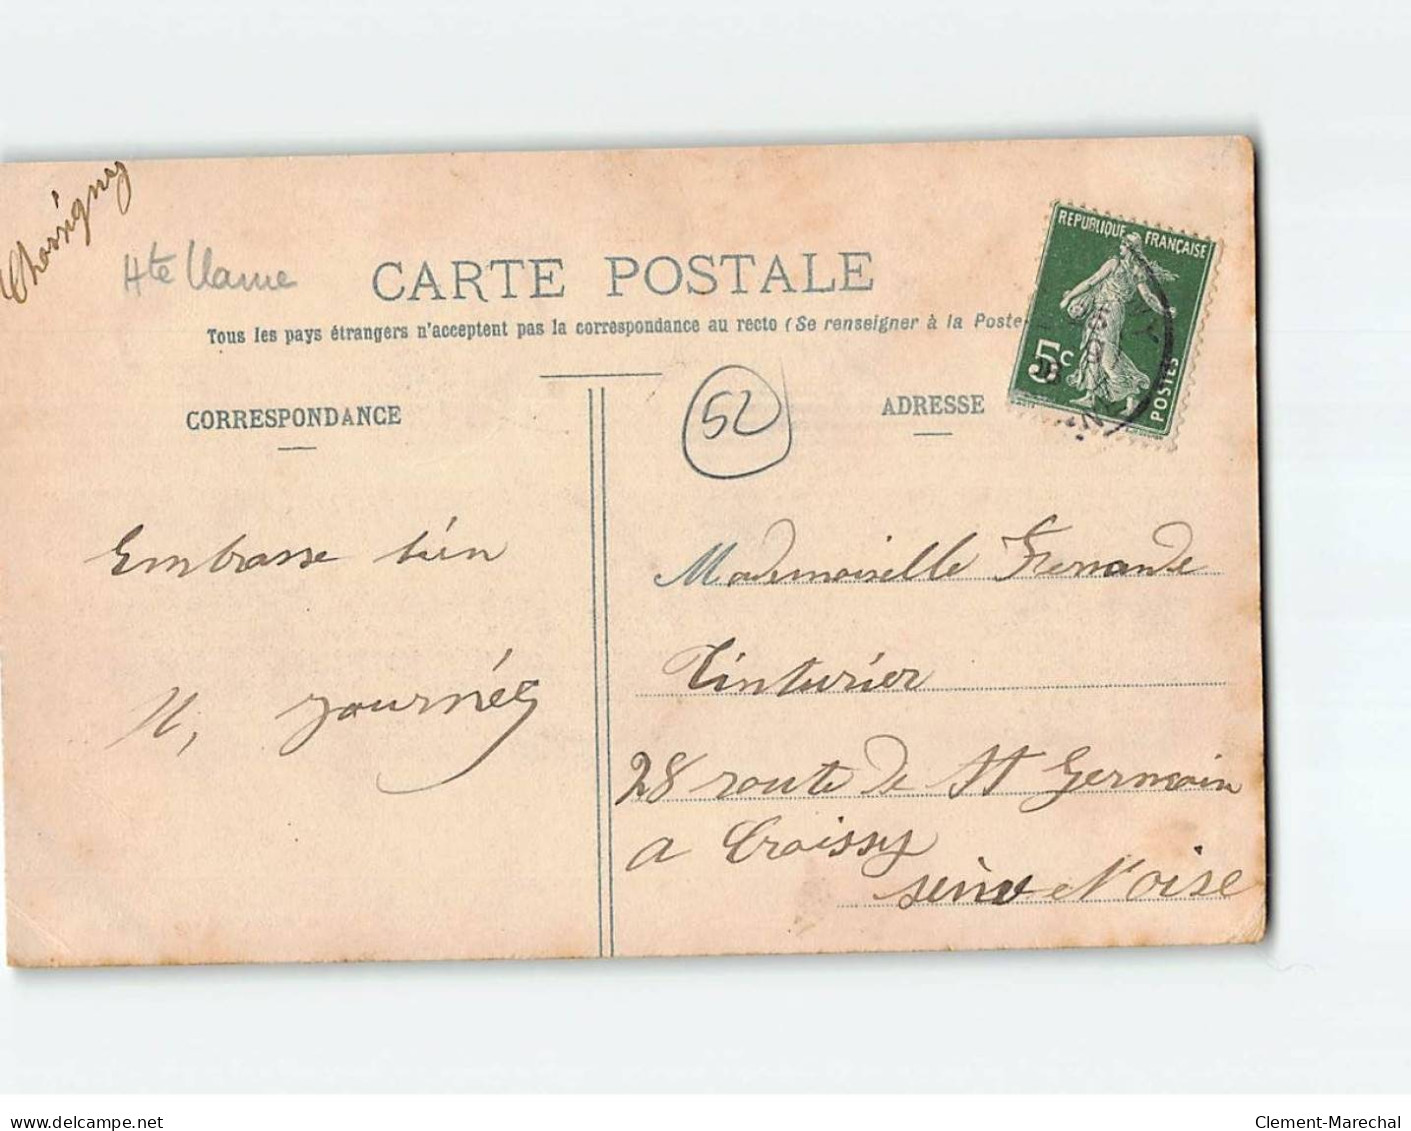 Chassigny
Hte Marne
CARTE POSTALE
Tous les pays étrangers n'acceptent pas la correspondance au recto (Se renseigner à la Poste
REPUBLIQUE FRANÇAISE
5c
POSTES
52
CORRESPONDANCE
ADRESSE
Embrasse bien
Mademoiselle Fernande
Tinturier
28 route de St Germain
a Croissy
seine et oise
www.delcampe.net
Clement-Marechal